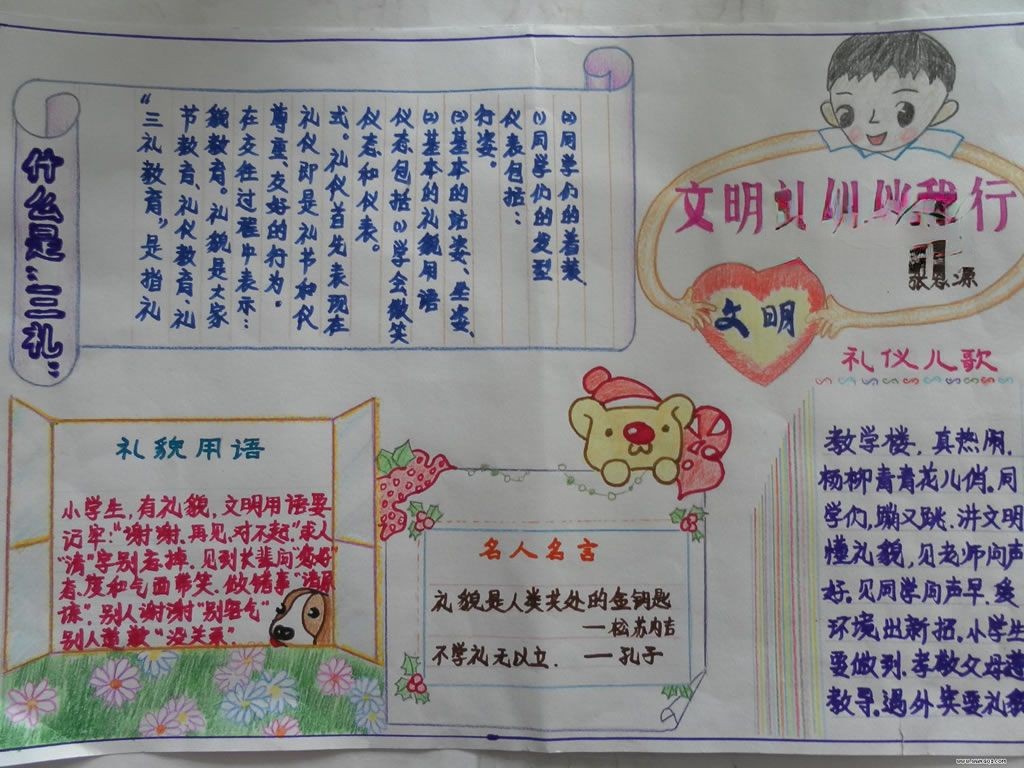 什么是“三礼”
“三礼教育”是指礼
节教育、礼仪教育、礼
貌教育。礼貌是大家
在交往过程中表示:
尊重、友好的行为。
礼仪即是礼节和仪
式。礼仪首先表现在
仪态和仪表。
仪态包括(1)学会微笑
(2)基本的礼貌用语
(3)基本的站姿、坐姿、
行姿。
仪表包括:
(1)同学们的发型
(2)同学们的着装、
文明礼仪伴我行
文明
礼仪儿歌
教学楼,真热闹,
杨柳青青花儿俏。同
学们,蹦又跳,讲文明
懂礼貌,见老师问声
好。见同学问声早,爱
环境出新招。小学生
要做到,孝敬父母遵
教导。遇外宾要礼貌
礼貌用语
小学生,有礼貌,文明用语要
记牢:“谢谢、再见、对不起”求人
“请”字别忘掉。见到长辈问“您好”
着。度和气面带笑。做错事“请原
谅”。别人谢谢“别客气”
别人道歉“没关系”
名人名言
礼貌是人类共处的金钥匙
—松苏内吉
不学礼无以立. —孔子